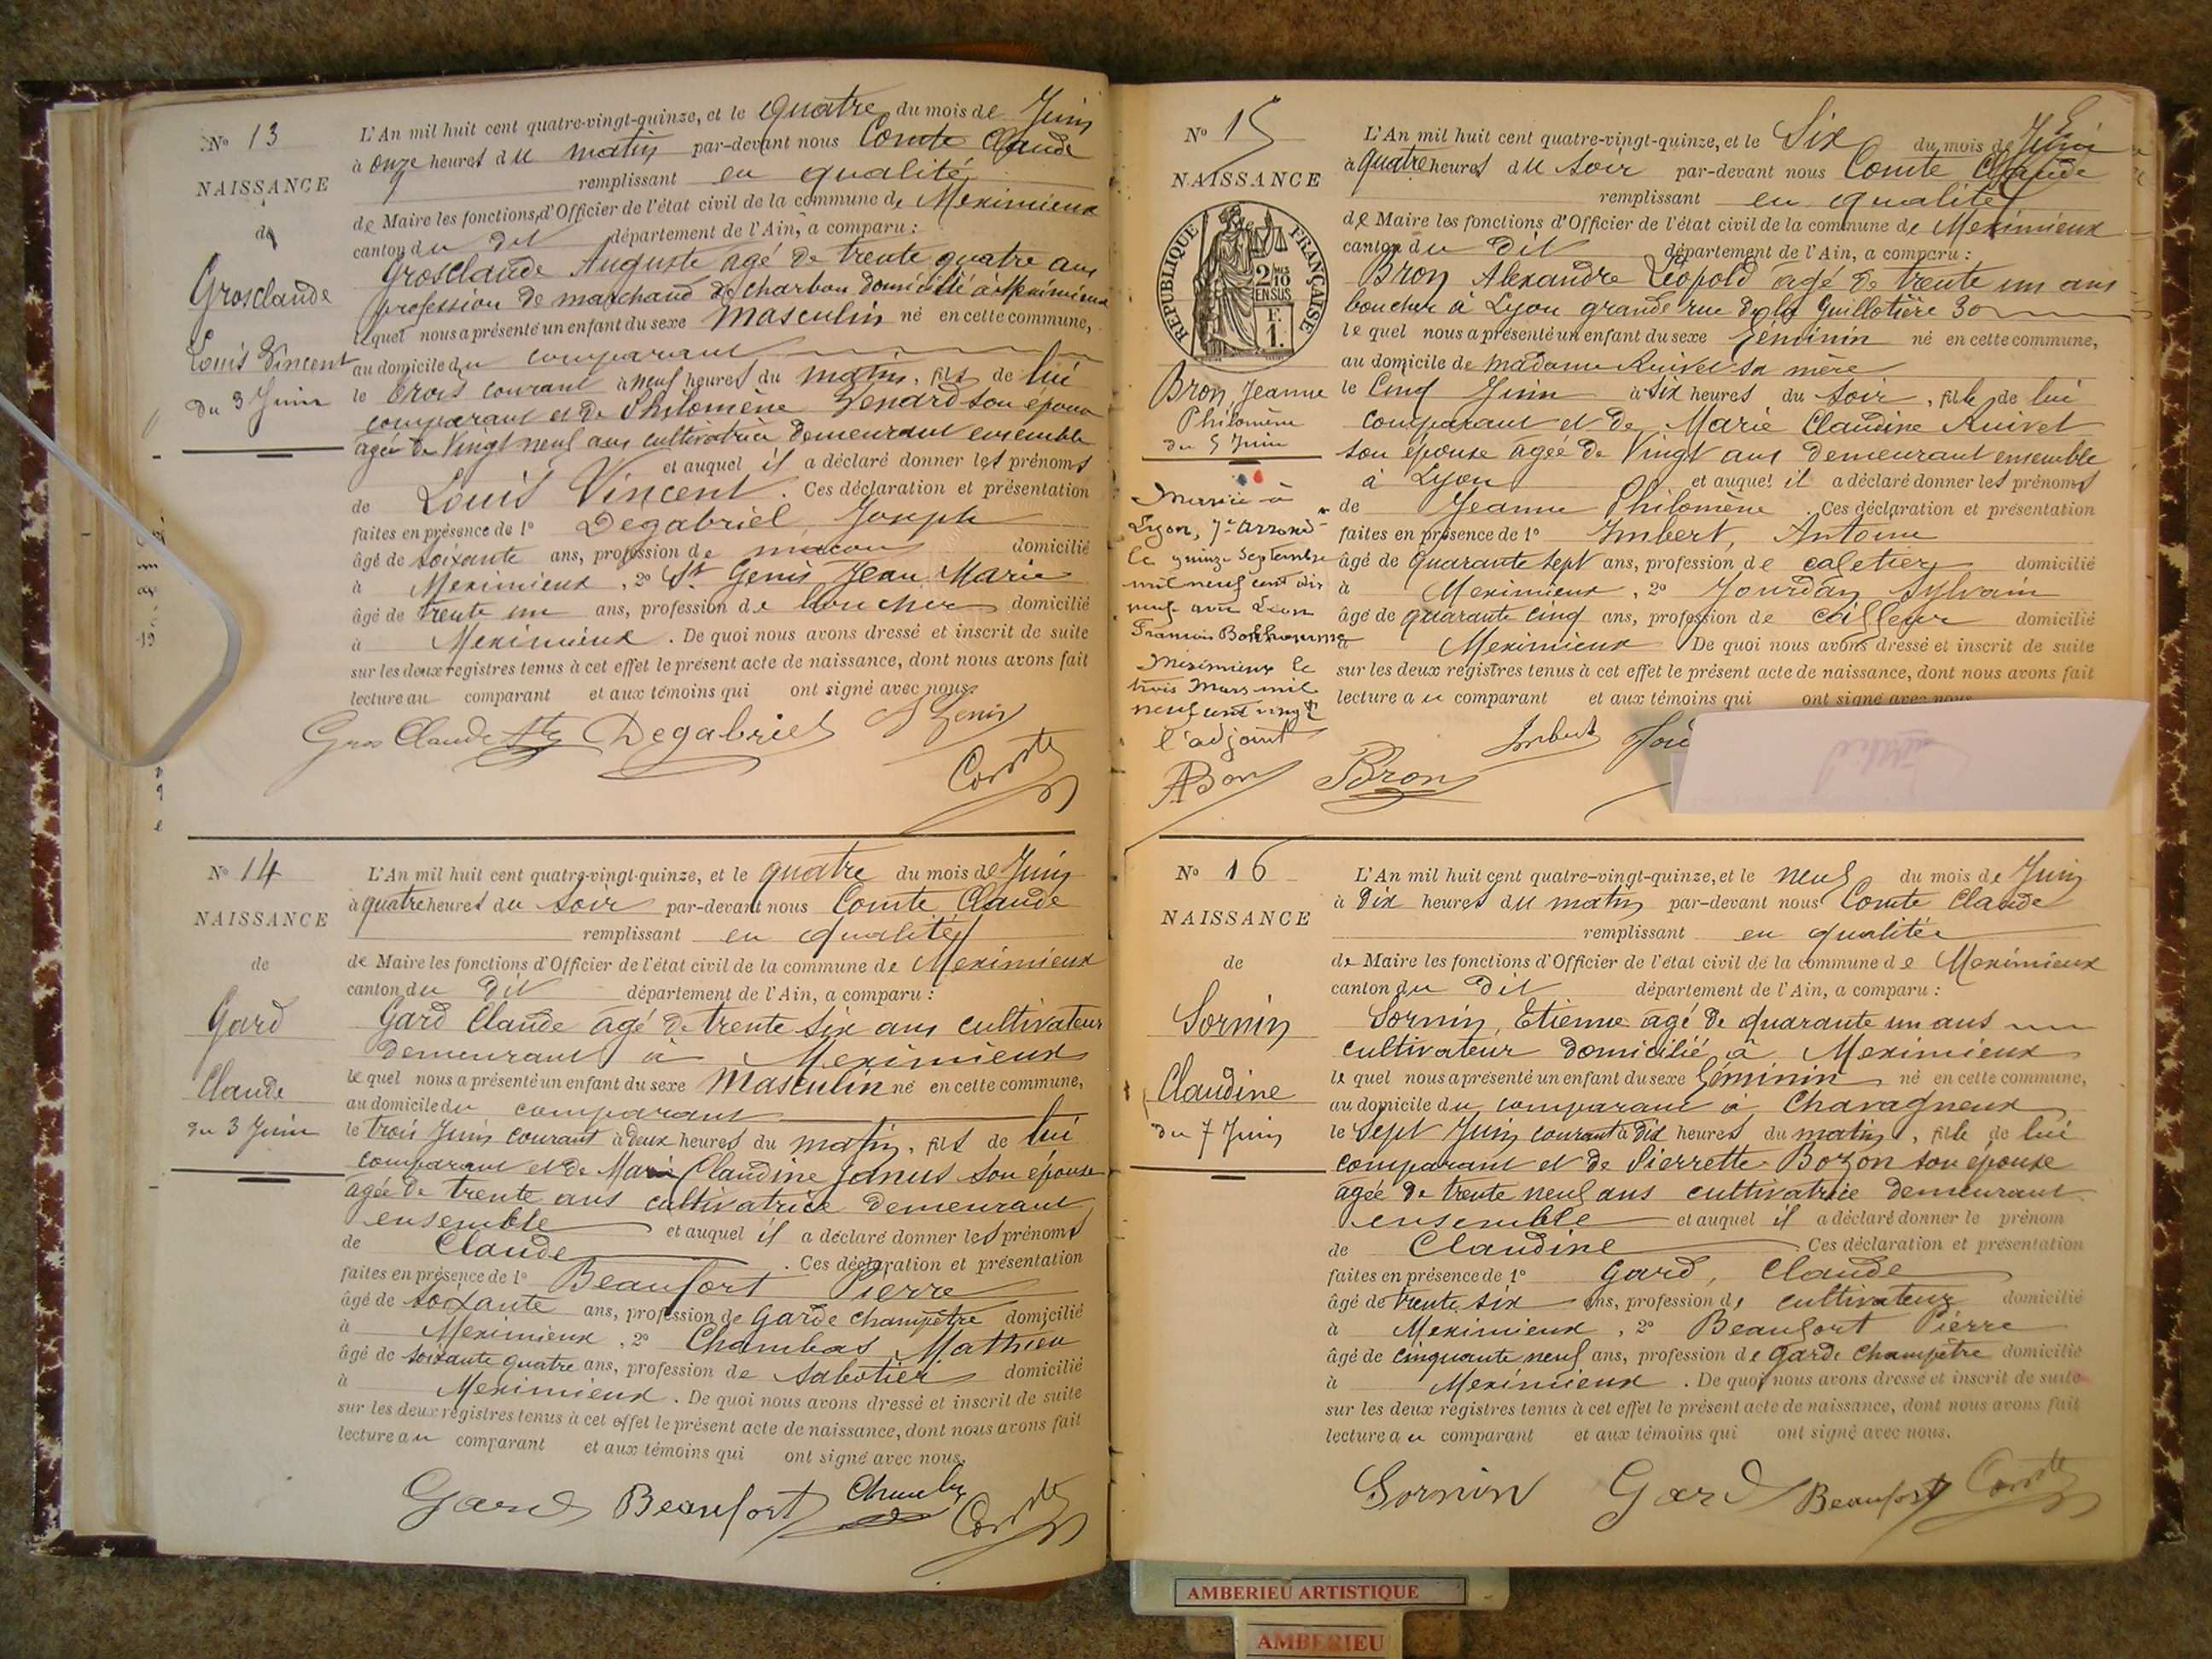 N° 13
NAISSANCE
de
Grosclaude
Louis Vincent
du 3 Juin
L'An mil huit cent quatre-vingt-quinze, et le quatre du mois de Juin
à onze heures du matin par-devant nous Comte Claude
remplissant en qualité
de Maire les fonctions d'Officier de l'état civil de la commune de Meximieux
canton du dit département de l'Ain, a comparu :
Grosclaude Auguste agé de trente quatre ans
profession de marchand de charbon domicilié à Meximieux
lequel nous a présenté un enfant du sexe Masculin né en cette commune,
au domicile du comparant
le trois courant à neuf heures du matin, fils de lui
comparant et de Philomène Genard son épouse
agée de Vingt neuf ans cultivatrice demeurant ensemble
et auquel il a déclaré donner les prénoms
de Louis Vincent. Ces déclaration et présentation
faites en présence de 1° Degabriel Joseph
âgé de soixante ans, profession de maçon domicilié
à Meximieux, 2° St Genis Jean Marie
âgé de trente un ans, profession de boucher domicilié
à Meximieux. De quoi nous avons dressé et inscrit de suite
sur les deux registres tenus à cet effet le présent acte de naissance, dont nous avons fait
lecture au comparant et aux témoins qui ont signé avec nous.
Gros Claude Degabriel St Genis
Comte
N° 14
NAISSANCE
de
Gard
Claude
du 3 Juin
L'An mil huit cent quatre-vingt-quinze, et le quatre du mois de Juin
à quatre heures du soir par-devant nous Comte Claude
remplissant en qualité
de Maire les fonctions d'Officier de l'état civil de la commune de Meximieux
canton du dit département de l'Ain, a comparu :
Gard Claude agé de trente six ans cultivateur
demeurant à Meximieux
lequel nous a présenté un enfant du sexe Masculin né en cette commune,
au domicile du comparant
le trois Juin courant à deux heures du matin, fils de lui
comparant et de Marie Claudine Janus son épouse
agée de trente ans cultivatrice demeurant
ensemble et auquel il a déclaré donner les prénoms
de Claude. Ces déclaration et présentation
faites en présence de 1° Beaufort Pierre
âgé de soixante ans, profession de Garde champêtre domicilié
à Meximieux, 2° Chambas Mathieu
âgé de soixante quatre ans, profession de sabotier domicilié
à Meximieux. De quoi nous avons dressé et inscrit de suite
sur les deux registres tenus à cet effet le présent acte de naissance, dont nous avons fait
lecture au comparant et aux témoins qui ont signé avec nous.
Gard Beaufort Comte
N° 15
NAISSANCE
RÉPUBLIQUE FRANÇAISE
2/10 EN SUS
1 F.
Bron, Jeanne
Philomène
du 5 Juin
Mariée à
Lyon, 7e arrond-
le quinze Septembre
mil neuf cent dix
neuf avec Léon
François Bonhomme
Meximieux le
trois Mars mil
neuf cent vingt
l'adjoint
L'An mil huit cent quatre-vingt-quinze, et le Six du mois de Juin
à quatre heures du soir par-devant nous Comte Claude
remplissant en qualité
de Maire les fonctions d'Officier de l'état civil de la commune de Meximieux
canton du dit département de l'Ain, a comparu :
Bron Alexandre Léopold agé de trente un ans
boucher à Lyon grande rue de la Guillotière 30
lequel nous a présenté un enfant du sexe Féminin né en cette commune,
au domicile de madame Ruivet sa mère
le Cinq Juin à six heures du soir, fille de lui
comparant et de Marie Claudine Ruivet
son épouse agée de Vingt ans demeurant ensemble
à Lyon et auquel il a déclaré donner les prénoms
de Jeanne Philomène. Ces déclaration et présentation
faites en présence de 1° Imbert, Antoine
âgé de quarante sept ans, profession de cafetier domicilié
à Meximieux, 2° Jourdan Sylvain
âgé de quarante cinq ans, profession de coiffeur domicilié
à Meximieux De quoi nous avons dressé et inscrit de suite
sur les deux registres tenus à cet effet le présent acte de naissance, dont nous avons fait
lecture au comparant et aux témoins qui ont signé avec nous
Imbert Jou
Bron
N° 16
NAISSANCE
de
Sornin
Claudine
du 7 Juin
L'An mil huit cent quatre-vingt-quinze, et le neuf du mois de Juin
à Dix heures du matin par-devant nous Comte Claude
remplissant en qualité
de Maire les fonctions d'Officier de l'état civil de la commune de Meximieux
canton du dit département de l'Ain, a comparu :
Sornin, Etienne agé de quarante un ans
cultivateur domicilié à Meximieux
lequel nous a présenté un enfant du sexe féminin né en cette commune,
au domicile du comparant à Chavagneux
le Sept Juin courant à Dix heures du matin, fille de lui
comparant et de Pierrette Bozon son épouse
agée de trente neuf ans cultivatrice demeurant
ensemble et auquel il a déclaré donner le prénom
de Claudine Ces déclaration et présentation
faites en présence de 1° Gard, Claude
âgé de trente six ans, profession de cultivateur domicilié
à Meximieux, 2° Beaufort Pierre
âgé de cinquante neuf ans, profession de Garde champêtre domicilié
à Meximieux. De quoi nous avons dressé et inscrit de suite
sur les deux registres tenus à cet effet le présent acte de naissance, dont nous avons fait
lecture au comparant et aux témoins qui ont signé avec nous.
Sornin Gard Beaufort Comte
AMBERIEU ARTISTIQUE
AMBERIEU